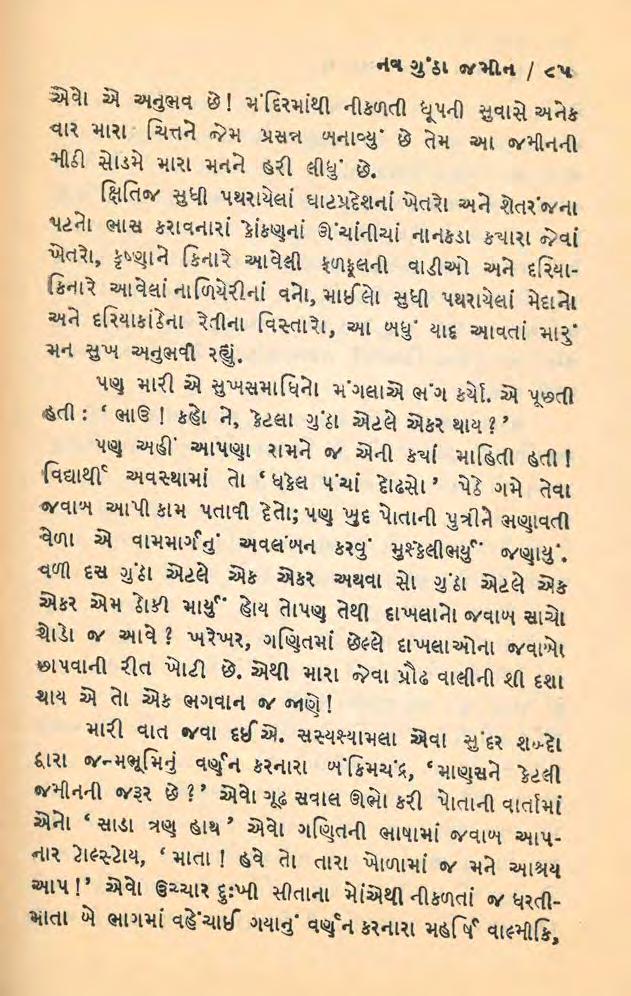 નવ ગુંઠા જમીન / ૮૫
એવો એ અનુભવ છે! મંદિરમાંથી નીકળતી ધૂપની સુવાસે અનેક
વાર મારા ચિત્તને જેમ પ્રસન્ન બનાવ્યું છે તેમ આ જમીનની
મીઠી સોડમે મારા મનને હરી લીધું છે.
ક્ષિતિજ સુધી પથરાયેલાં ઘાટપ્રદેશનાં ખેતરો અને શેતરંજના
પટનો ભાસ કરાવનારાં કોંકણનાં ઊંચાંનીચાં નાનકડા કયારા જેવાં
ખેતરો, કૃષ્ણાને કિનારે આવેલી ફળફૂલની વાડીઓ અને દરિયા-
કિનારે આવેલાં નાળિયેરીનાં વનો, માઈલો સુધી પથરાયેલાં મેદાનો
અને દરિયાકાંઠેના રેતીના વિસ્તારો, આ બધું યાદ આવતાં મારું
મન સુખ અનુભવી રહ્યું.
પણ મારી એ સુખસમાધિનો મંગલાએ ભંગ કર્યો. એ પૂછતી
હતી : ‘ ભાઉ ! કહો ને, કેટલા ગુંઠા એટલે એકર થાય ? ’
પણ અહીં આપણા રામને જ એની કયાં માહિતી હતી !
વિદ્યાર્થી અવસ્થામાં તો ‘ ધકેલ પંચાં દોઢસો ’ પેઠે ગમે તેવા
જવાબ આપી કામ પતાવી દેતો; પણ ખુદ પોતાની પુત્રીને ભણાવતી
વેળા એ વામમાર્ગનું અવલંબન કરવું મુશ્કેલીભર્યું જણાયું.
વળી દસ ગુંઠા એટલે એક એકર અથવા સો ગુંઠા એટલે એક
એકર એમ ઠોકી માર્યું હોય તોપણ તેથી દાખલાનો જવાબ સાચો
થોડો જ આવે ? ખરેખર, ગણિતમાં છેલ્લે દાખલાઓના જવાબો
છાપવાની રીત ખોટી છે. એથી મારા જેવા પ્રૌઢ વાલીની શી દશા
થાય એ તો એક ભગવાન જ જાણે !
મારી વાત જવા દઈએ. સસ્યશ્યામલા એવા સુંદર શબ્દો
દ્વારા જન્મભૂમિનું વર્ણન કરનારા બંકિમચંદ્ર, ‘ માણસને કેટલી
જમીનની જરૂર છે ? ’ એવો ગૂઢ સવાલ ઊભો કરી પોતાની વાર્તામાં
એનો ‘ સાડા ત્રણ હાથ ’ એવો ગણિતની ભાષામાં જવાબ આપ-
નાર ટોલ્સ્ટોય, ‘ માતા ! હવે તો તારા ખોળામાં જ મને આશ્રય
આપ ! ’ એવો ઉચ્ચાર દુઃખી સીતાના મોંએથી નીકળતાં જ ધરતી-
માતા બે ભાગમાં વહેંચાઈ ગયાનું વર્ણન કરનારા મહર્ષિ વાલ્મીકિ,